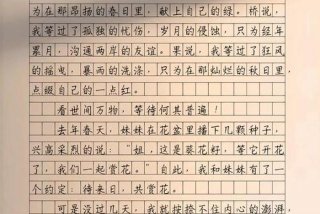 为在那昂扬的春日里，献上自己的绿。桥说，
我等过了孤独的忧伤，岁月的侵蚀，只为经年
累月，沟通两岸的友谊。果说，我等过了狂风
的摇曳，暴雨的洗涤，只为在那灿烂的秋日里，
点缀自己的一点红。
看世间万物，等待何其普遍！
去年春天，妹妹在花盆里播下几颗种子，
兴高采烈的说：“姐，这是葵花籽，等它开花
了，我们一起赏花。”自此，我和妹妹有了一
个约定：待来日，共赏花。
可是没过几天，我就按捺不住内心的澎湃，